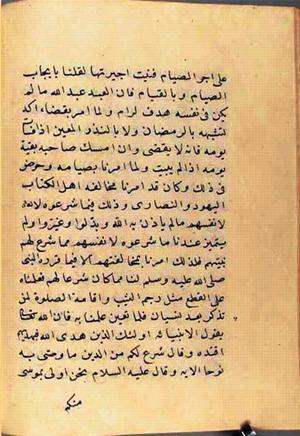 على اجر الصيام فنيت اجيرتها لقلنا بايجاب
الصيام وبالقيام فان العبد عبد الله ما له
يكن في نفسه هدف لرام ولما امر بقضاء اكد
تشبهه بالرمضان ولا بالنذر المعين اذا فات
يومه فانه لا يقضى وان امسك صاحبه بقية
يومه اذا لم يبيت ولما امرنا بصيامه وحرض
في ذلك وكان قد امرنا مخالفة اهل الكتاب
اليهود والنصارى وذلك فيما شرعوه
لانفسهم ما لم ياذن به الله وبدلوا وغيروا ولم
يتميز عندنا ما شرعوه لانفسهم مما شرع لهم
نبيهم فلذلك امرنا بمخالفتهم الا فيما قرره النبى
صلى الله عليه وسلم لنا مما كان شرعا لهم فعلناه
على القطع مثل رجم الثيب واقامة الصلوة لمن
تذكر بعد نسيان فلما تعين علمنا به فان الله تعالى
يقول الانبياء اولئك الذين هدى الله فبهداهم
اقتده وقال شرع لكم من الدين ما وصى به
نوحا الايه وقال عليه السلام نحن اولى بموسى
منكم